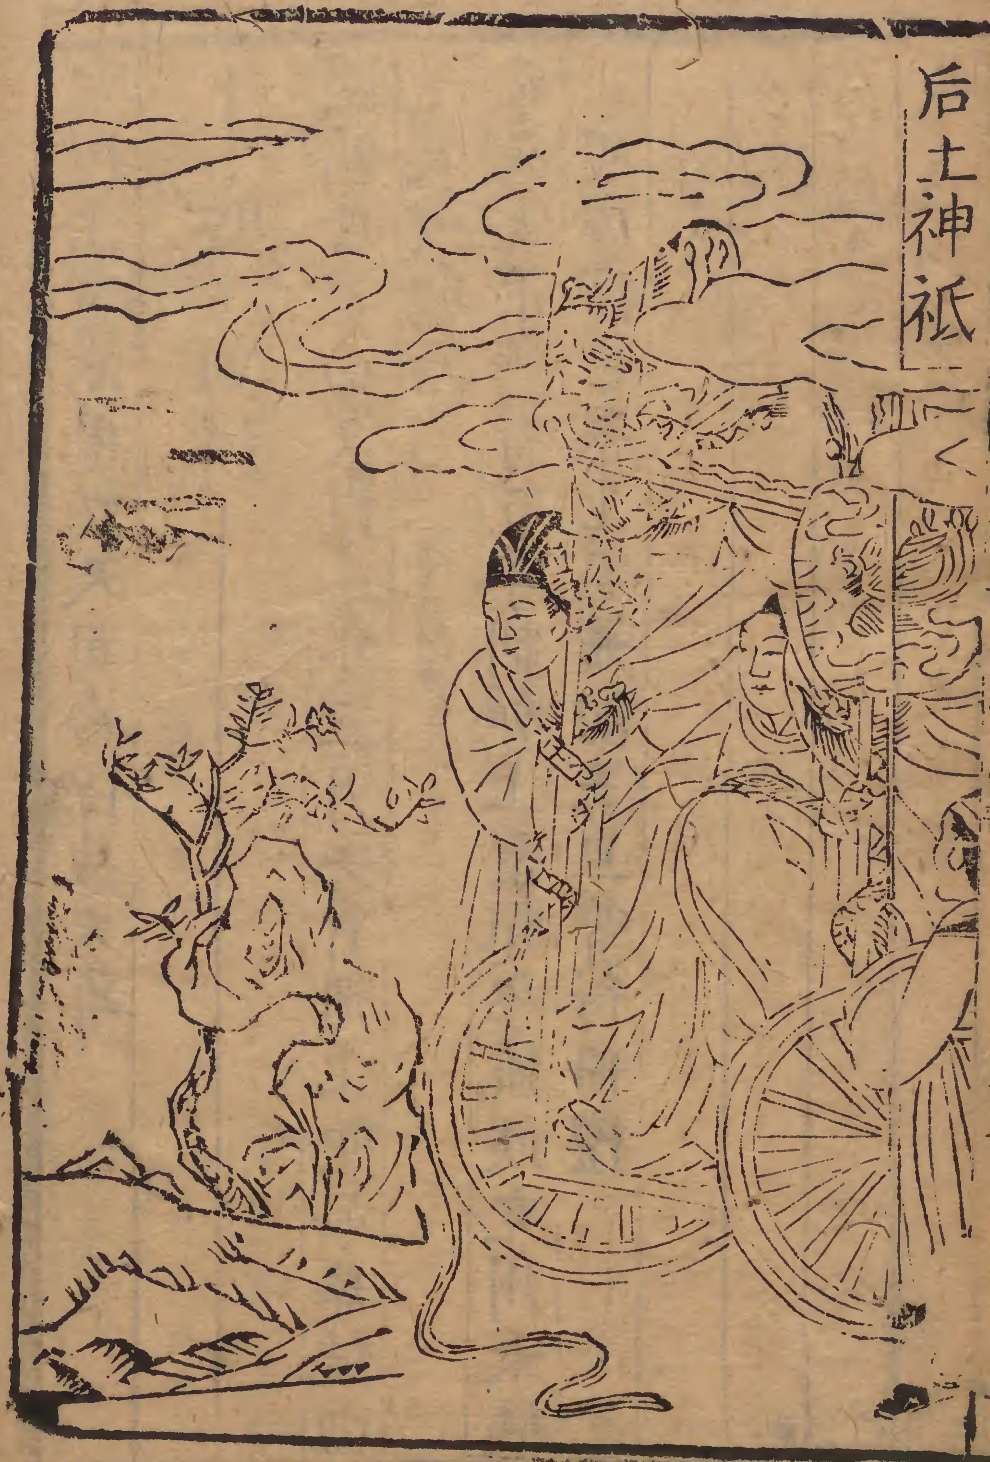 后土神祇